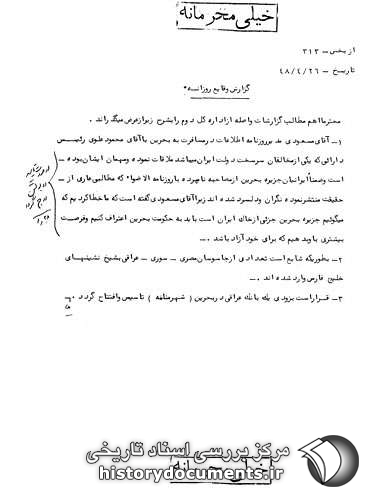 خیلی محرمانه
از بخش ــ ۳۱۳
تاریخ ــ ۴۸/۴/۲۶
گزارش وقایع روزانه
محترما اهم مطالب گزارشات واصله از اداره کل دوم را بشرح زیر از عرض میگذراند.
۱ــ آقای مسعودی مدیر روزنامه اطلاعات در مسافرت به بحرین با آقای محمود علوی رئیس
دارائی که یکی از مخالفان سرسخت دولت ایران میباشد ملاقات نموده و مهمان ایشان بوده ــ
است و ضمناً ایرانیان جزیره بحرین از مصاحبه نامبرده با روزنامه الاضواء که مطالبی عاری از ــ
حقیقت منتشر نموده نگران و دلسرد شده اند زیرا آقای مسعودی گفته است که ما خطا کردیم که
میگوئیم جزیره بحرین جزئی از خاک ایران است باید به حکومت بحرین اعتراف کنیم و فرصت
بیشتری باو بدهیم که برای خود آزاد باشد ...
۲ــ بطوریکه شایع است تعدادی از جاسوسان مصری ــ سوری ــ عراقی بشیخ نشینهای
خلیج فارس وارد شده اند.
۳ــ قرار است بزودی یک بانک عراقی در بحرین (شهر منامه) تاسیس و افتتاح گردد.
مرکز بررسی اسناد تاریخی
historydocuments.ir
خیلی محرمانه